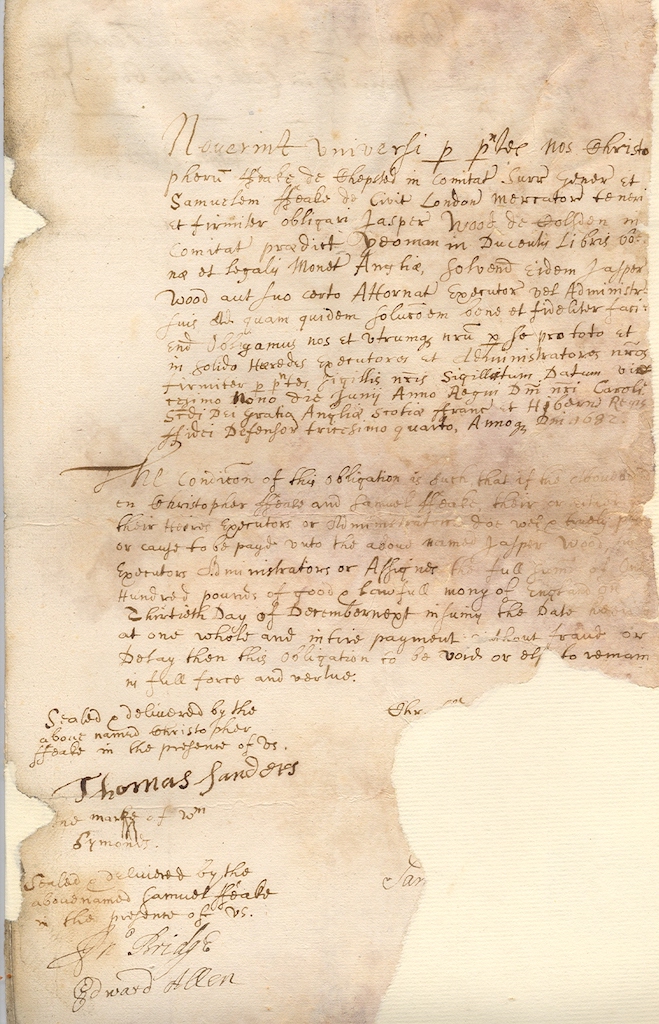 Noverint universi p p'tes nos Christo
pherū Ffeake de Chepsted in Comitat Surr gener et
Samuelem Ffeake de Civit London mercator teneri
et firmiter obligari Jasper Wood de in
Comitat prædict Yeoman in Ducentis Libris bo-
næ et legalis Monet Angliæ, Solvend Eidem Jasper
Wood aut suo certo Attornat Executor vel Administr
suis Ad quam quidem solucōem bene et fideliter faci
End Obligamus nos et utrumq nrū p se pro toto et
in solido Heredes Executores et Administratores nr̄os
firmiter p p'tes sigillis nr̄is Sigillatum Datum vi
cesimo Nono die Junij Anno Regni Dn̄i nr̄i Caroli
Sc̄di Dei Gratia Angliæ Scotiæ Franc et Hibern Regis
Ffidei Defensor tricesimo quarto, Annoq Dn̄i 1682.
The Condicōn of this obligation is such that if the abovebound
en Christopher Ffeake and Samuel Ffeake, their or
their Heeres Executors or Administrators doe well & truely pay
or cause to be payd unto the above named Jasper Wood
Executors Administrators or Assignes the full summ of One
Hundred pounds of good & lawfull mony of England on
Thirtieth Day of December next insuing the Date
at one whole and intire payment without fraud or
Delay then this Obligation to be void or els to remain
in full force and vertue.
Sealed & delivered by the
above named Christopher
Ffeake in the presence of us.
Chr
Thomas Sanders
the marke of Wm
Symonds.
Sealed & delivered by the
abovenamed Samuel Ffeake
in the presence of us.
Sam
Jno Bridge
Edward Allen